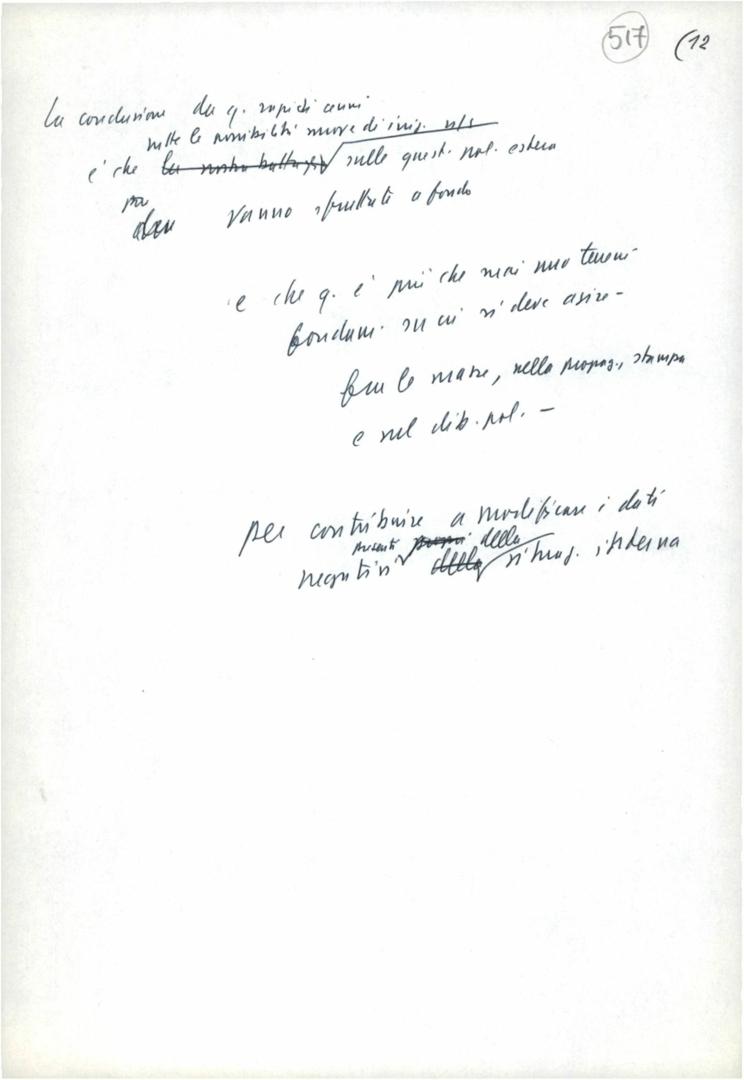 517 (12
La conclusione da q. rapidi cenni
tutte le possibilità nuove di iniz. n/s
è che la nostra battaglia sulle quest. pol. estera
vanno sfruttate a fondo
e che q. è più che mai uno terreni
fondam. su cui si deve agire -
fra le masse, nella propag., stampa
e nel dib. pol. -
per contribuire a modificare i dati
presenti della
negativi della situaz. interna